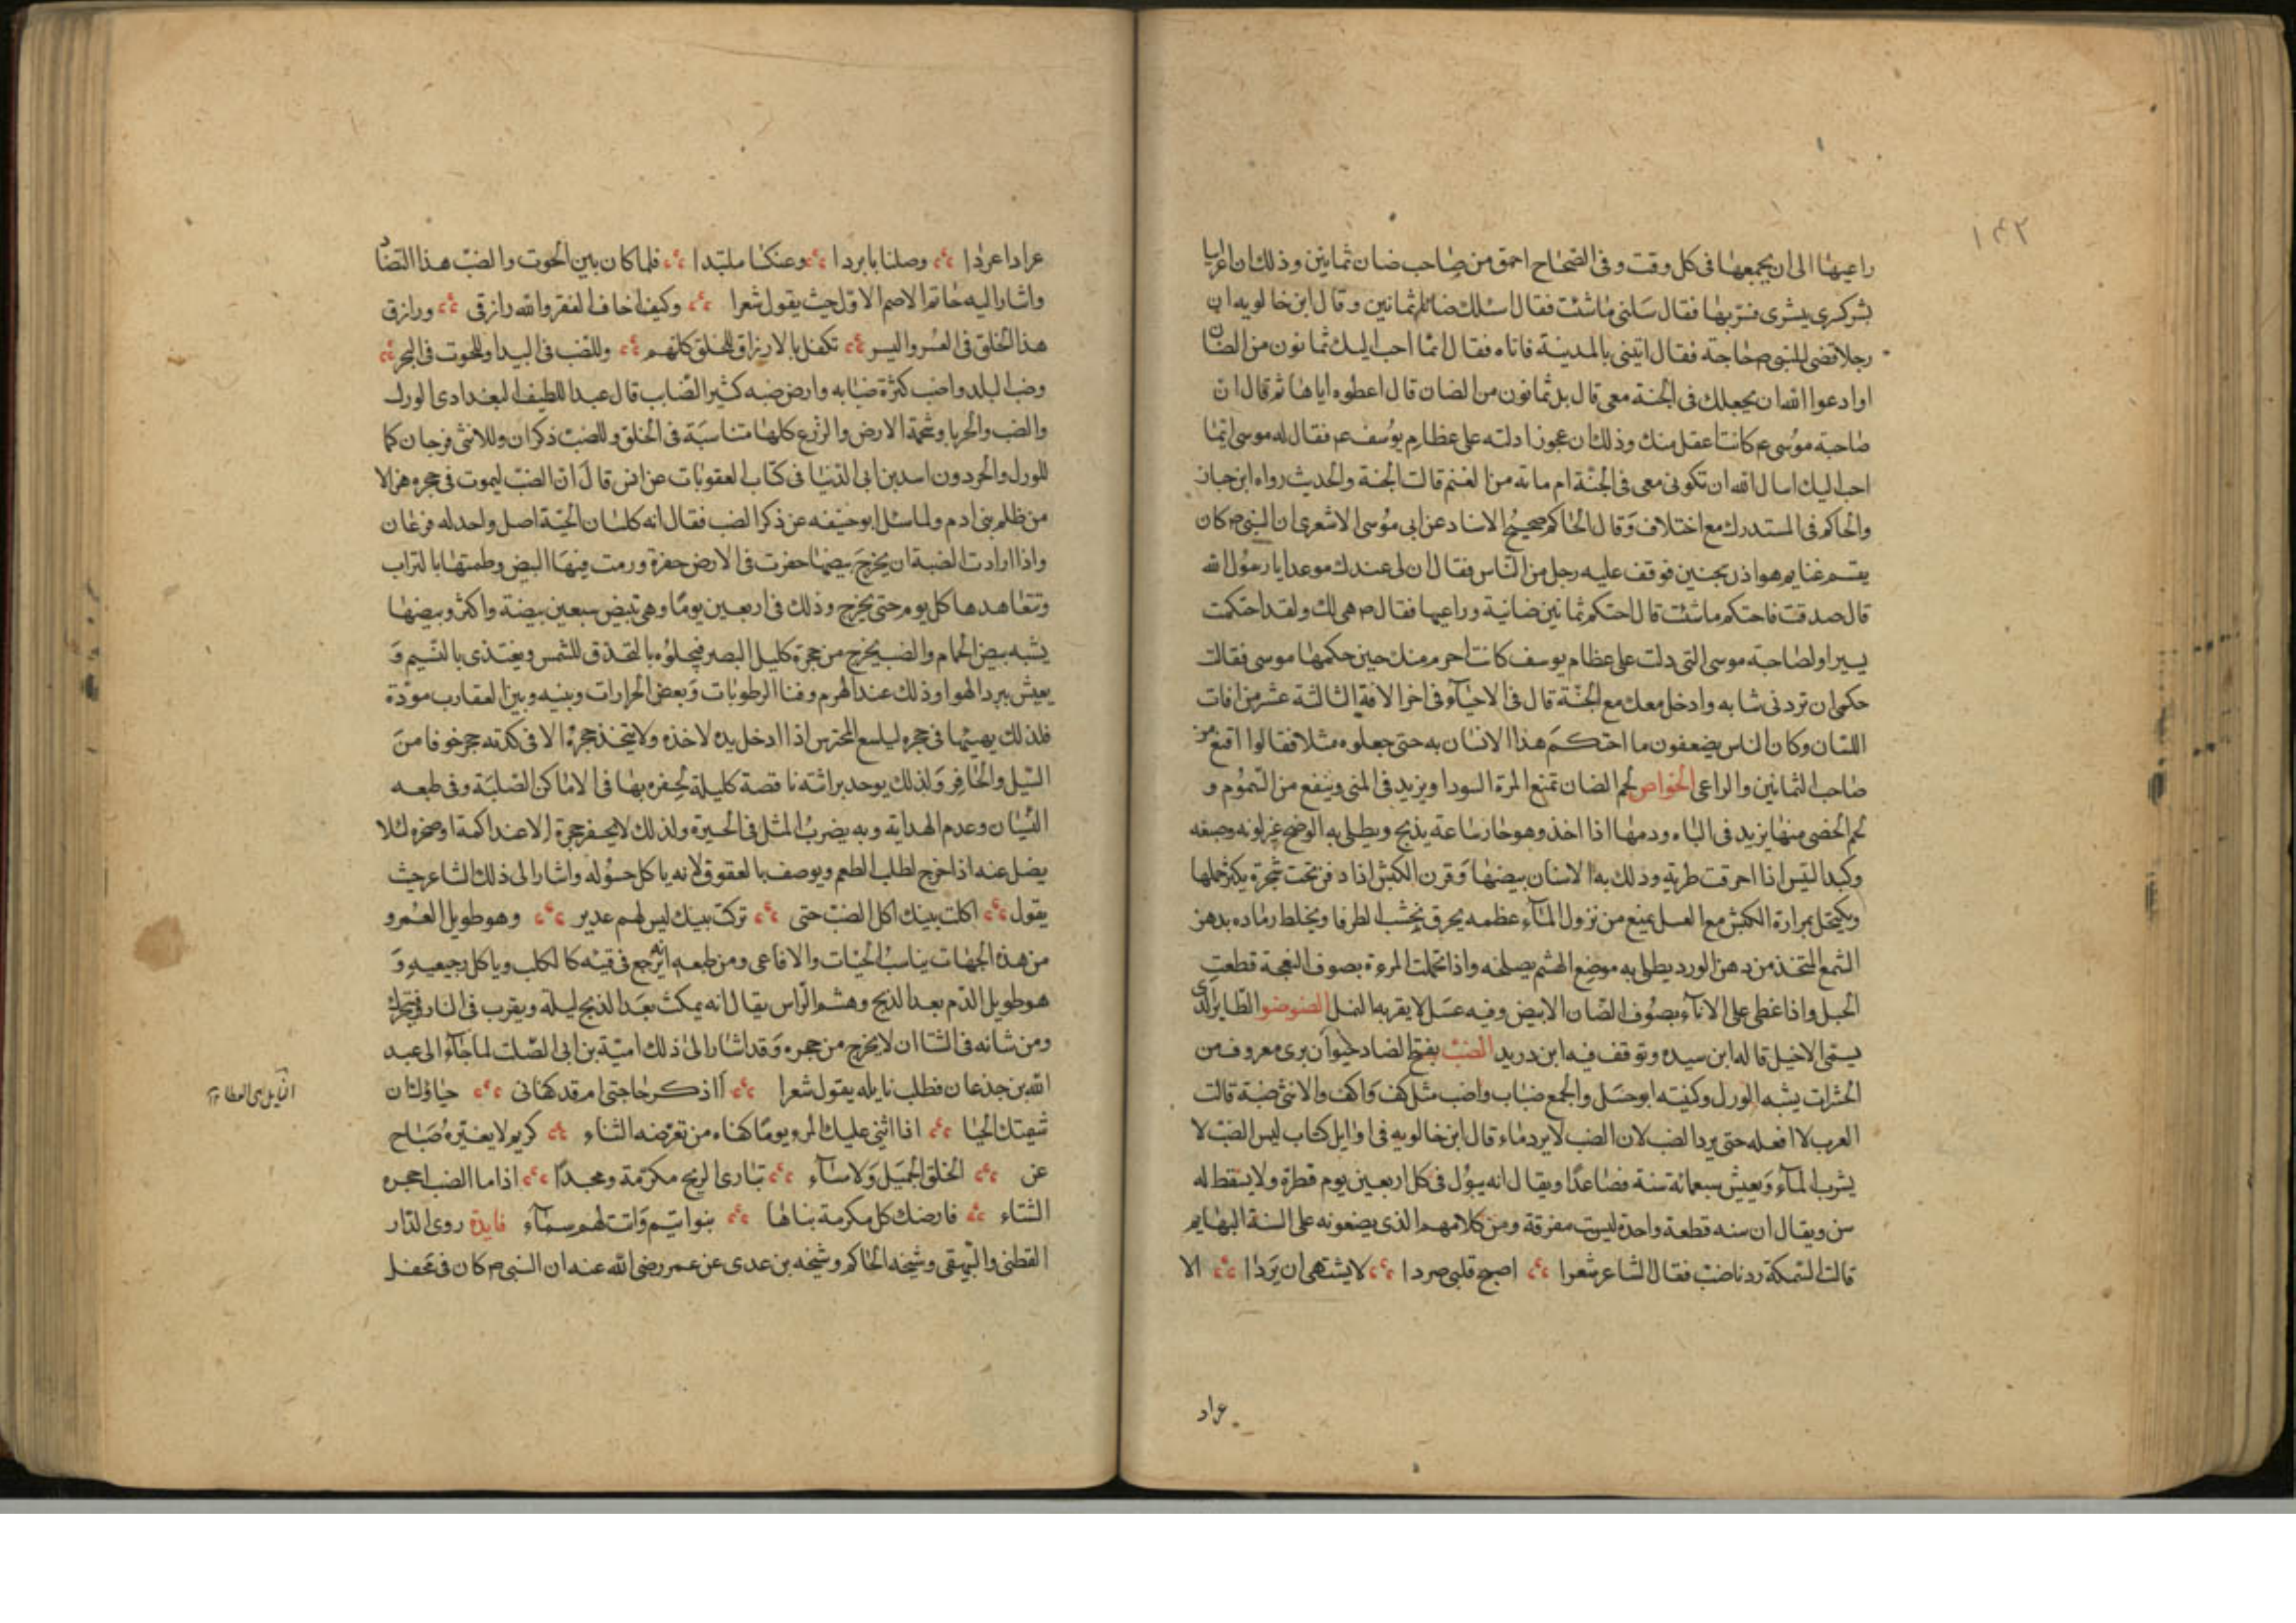 ١٤٢
راعيها الى ان يجمعها فى كل وقت وفى الصحاح احمق من صاحب ضان ثمانين وذلك ان اعرابيا
بشر كسرى ببشرى فسر بها فقال سلنى ما شئت فقال اسئلك ضانا ثمانين وقال ابن خالويه ان
رجلا قضى للنبى ص حاجة فقال ايتينى بالمدينة فاتاه فقال ايما احب اليك ثمانون من الضان
او ادعوا الله ان يجعلك فى الجنة معى قال بل ثمانون من الضان قال اعطوه اياها ثم قال ان
صاحبة موسى ع كانت اعقل منك وذلك ان عجوزا دلته على عظام يوسف ع فقال له موسى ايما
احب اليك اسال الله ان تكونى معى فى الجنة ام ماية من الغنم قالت الجنة والحديث رواه ابن حبان
والحاكم فى المستدرك مع اختلاف وقال الحاكم صحيح الاسناد عن ابى موسى الاشعرى ان النبى ص كان
يقسم غنايم هوازن بحنين فوقف عليه رجل من الناس فقال ان لى عندك موعدا يا رسول الله
قال صدقت فاحتكم ما شئت قال احتكم ثمانين ضانية وراعيها فقال ص هى لك ولقد احتكمت
يسيرا ولصاحبة موسى التى دلت على عظام يوسف كانت احزم منك حين حكمها موسى فقالت
حكمى ان تردنى شابه وادخل معك مع الجنة قال فى الاحياء فى اخر الافة الثالثة عشر من افات
اللسان وكان الناس يضعفون ما احتكم هذا الانسان به حتى جعلوه مثلا فقالوا اقنع من
صاحب الثمانين والراعى الخواص لحم الضان تمنع المرة السودا ويزيد فى المنى وينفع من السموم و
لحم الخصى منها يزيد فى الباء ودمها اذا اخذ وهو حار ساعة يذبح ويطلى به الوضح غير لونه وصبغه
وكبد التيس اذا احرقت طرية وذلك به الانسان بيضها وقرن الكبش اذا دفن تحت شجرة يكثر حملها
ويكتحل بمرارة الكبش مع العسل يمنع من نزول الماء عظمه يحرق بخشب الطرفا ويخلط رماده بدهن
الشمع المتخذ من دهن الورد يطلى به موضع الهشم يصلحه واذا تحملت المرءة بصوف النعجة قطعت
الحبل واذا غطى على الاناء بصوف الضان الابيض وفيه عسل لا يقربه النمل الضوضو الطاير الذى
يسمى الاخيل قاله ابن سيده وتوقف فيه ابن دريد الضب بفتح الضاد حيوان برى معروف من
الحشرات يشبه الورل وكنيته ابو حسل والجمع ضباب واضب مثل كف واكف والانثى ضبة قالت
العرب لا افعله حتى يرد الضب لان الضب لا يرد ماء قال ابن خالويه فى اوايل كتاب ليس الضب لا
يشرب الماء ويعيش سبعمائة سنة فصاعدا ويقال انه يبول فى كل اربعين يوم قطرة ولا يسقط له
سن ويقال ان سنه قطعة واحدة ليست مفرقة ومن كلامهم الذى يضعونه على السنة البهايم
قالت السمكة رد ناضب فقال الشاعر شعرا اصبح قلبى صردا لا يشتهى ان يردا الا
عراد
عرادا عردا وصلنا بابردا وعنكسا ملتبدا فلما كان بين الحوت والضب هذا التضاد
واشار اليه حاتم الاصم الاول حيث يقول شعرا وكيف اخاف الفقر والله رازقى ورازق
هذا الخلق فى العسر واليسر تكفل بالارزاق للخلق كلهم وللضب فى البيدا وللحوت فى البحر
وضب البلد واضب كثرة ضبابه وارض ضبه كثير الضباب قال عبد اللطيف البغدادى الورل
والضب والحربا وشحمة الارض والوزع كلها متناسبة فى الخلق وللضب ذكران وللانثى فرجان كما
للورل والحردون اسد بن ابى الدنيا فى كتاب العقوبات عن انس قال ان الضب ليموت فى جحره هزلا
من ظلم بنى ادم ولما سئل ابو حنيفه عن ذكر الضب فقال انه كلسان الحية اصل واحد له فرعان
واذا ارادت الضبة ان يخرج بيضها حفرت فى الارض حفرة ورمت فيها البيض وطمتها بالتراب
وتتعاهدها كل يوم حتى يخرج وذلك فى اربعين يوما وهى تبيض سبعين بيضة واكثر وبيضها
يشبه بيض الحمام والضب يخرج من جحره كليل البصر فيجلوه بالتحذق للشمس ويغتذى بالنسيم و
يعيش ببرد الهوا وذلك عند الهرم وفنا الرطوبات وبعض الحرارات وبينه وبين العقارب مودة
فلذلك يهيئها فى جحره ليلسع المحترس اذا ادخل يده لاخذه ولا يتخذ جحره الا فى كدته حجر خوفا من
السيل والحافر ولذلك يوحد براثنه ناقصة كليلة لحفره بها فى الاماكن الصلبة وفى طبعه
النسيان وعدم الهداية وبه يضرب المثل فى الحيرة ولذلك لا يحفر جحرة الا عند اكمة او صخره لئلا
يضل عنه اذا خرج لطلب الطعم ويوصف بالعقوق لانه ياكل حسوله واشار الى ذلك الشاعر حيث
يقول اكلت بينك اكل الضب حتى تركت بينك ليس لهم عدير وهو طويل العمر و
من هذه الجهات يناسب الحيات والافاعى ومن طبعه انه يرجع فى قيئه كالكلب وياكل رجيعه و
هو طويل الدم بعد الذبح وهشم الراس يقال انه يمكث بعد الذبح ليلة ويقرب فى النار فيتحرك
ومن شانه فى الشتا ان لا يخرج من جحره وقد اشار الى ذلك امية بن ابى الصلت لما جاء الى عبد
الله بن جذعان فطلب نايله يقول شعرا أاذكر حاجتى ام قد كفانى حياؤك ان
شيمتك الحيا اذا اثنى عليك المرء يوما كفاه من تعرضه الثناء كريم لا يغيره صباح
عن الخلق الجميل ولا مساء تبارى الريح مكرمة ومجدا اذا ما الضب اجحره
الشتاء فارضك كل مكرمة بناها بنوا تيم وانت لهم سماء فايدة روى الدار
القطنى والبيهقى وشيخه الحاكم وشيخه بن عدى عن عمر رضى الله عنه ان النبى ص كان فى محفل